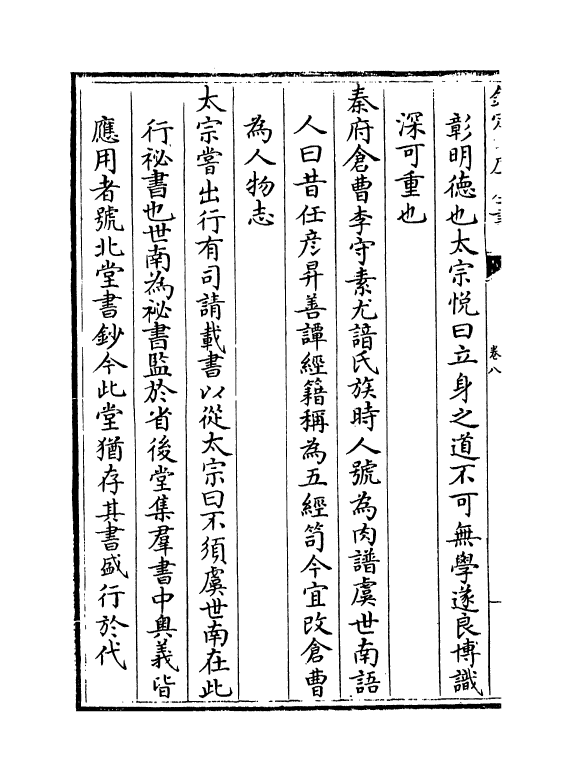 彰明德也太宗悦曰立身之道不可無學遂良博識
深可重也
秦府倉曹李守素尤諳氏族時人號為肉譜虞世南語
人曰昔任彥昇善譚經籍稱為五經笥今宜改倉曹
為人物志
太宗嘗出行有司請載書以從太宗曰不須虞世南在此
行祕書也世南為祕書監於省後堂集羣書中奥義皆
應用者號北堂書鈔今此堂猶存其書盛行於代
卷八